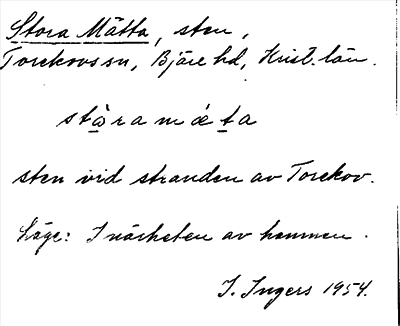 Stora Mätta, sten,
Torekovs sn, Bjäre hd, Krist. län.
stɷ̀ramǽta
sten vid stranden av Torekov.
Läge: I närheten av hamnen.
I. Ingers 1954.